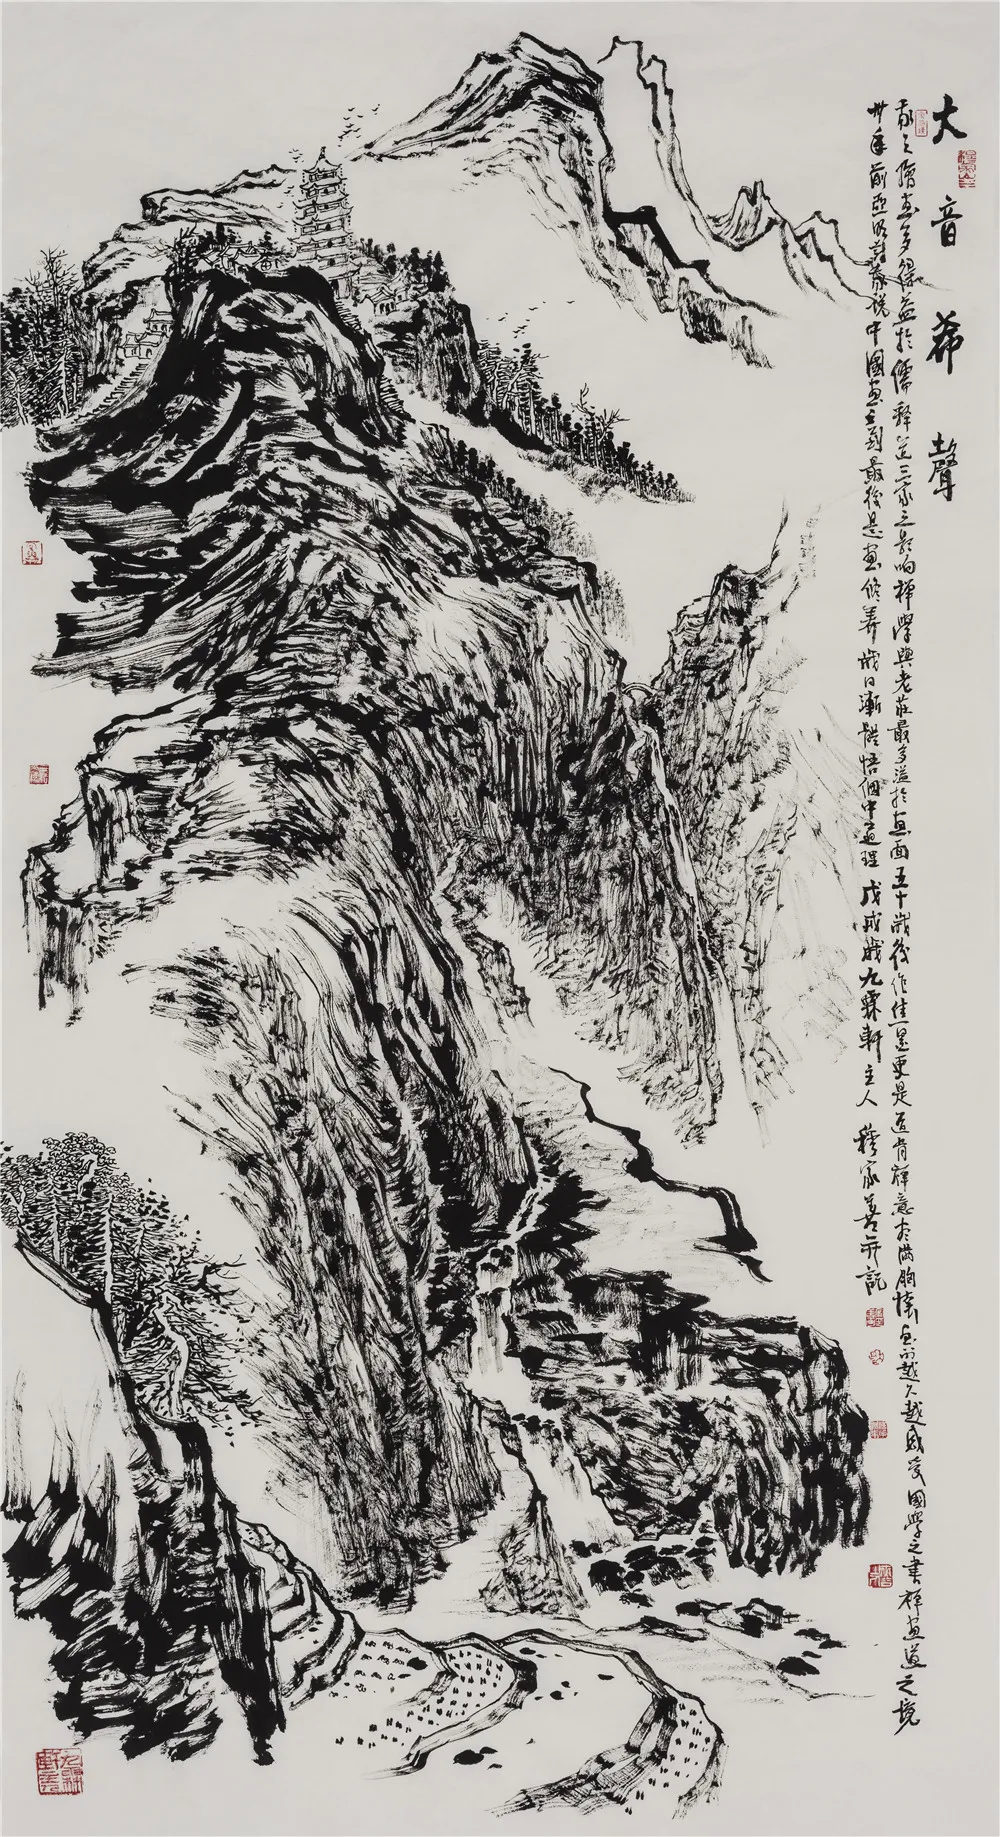 大音希聲
我之繪畫多得益於儒釋道三家之影响禪學與老莊最多溢於畫面五十歲後作更是道骨禪意充满胸懷越久越感國學之書禪画道之境
卅年前亞明對我説中國画画到最後是画修养我日漸體悟個中道理戊戌歲九霖軒主人穆家善并記